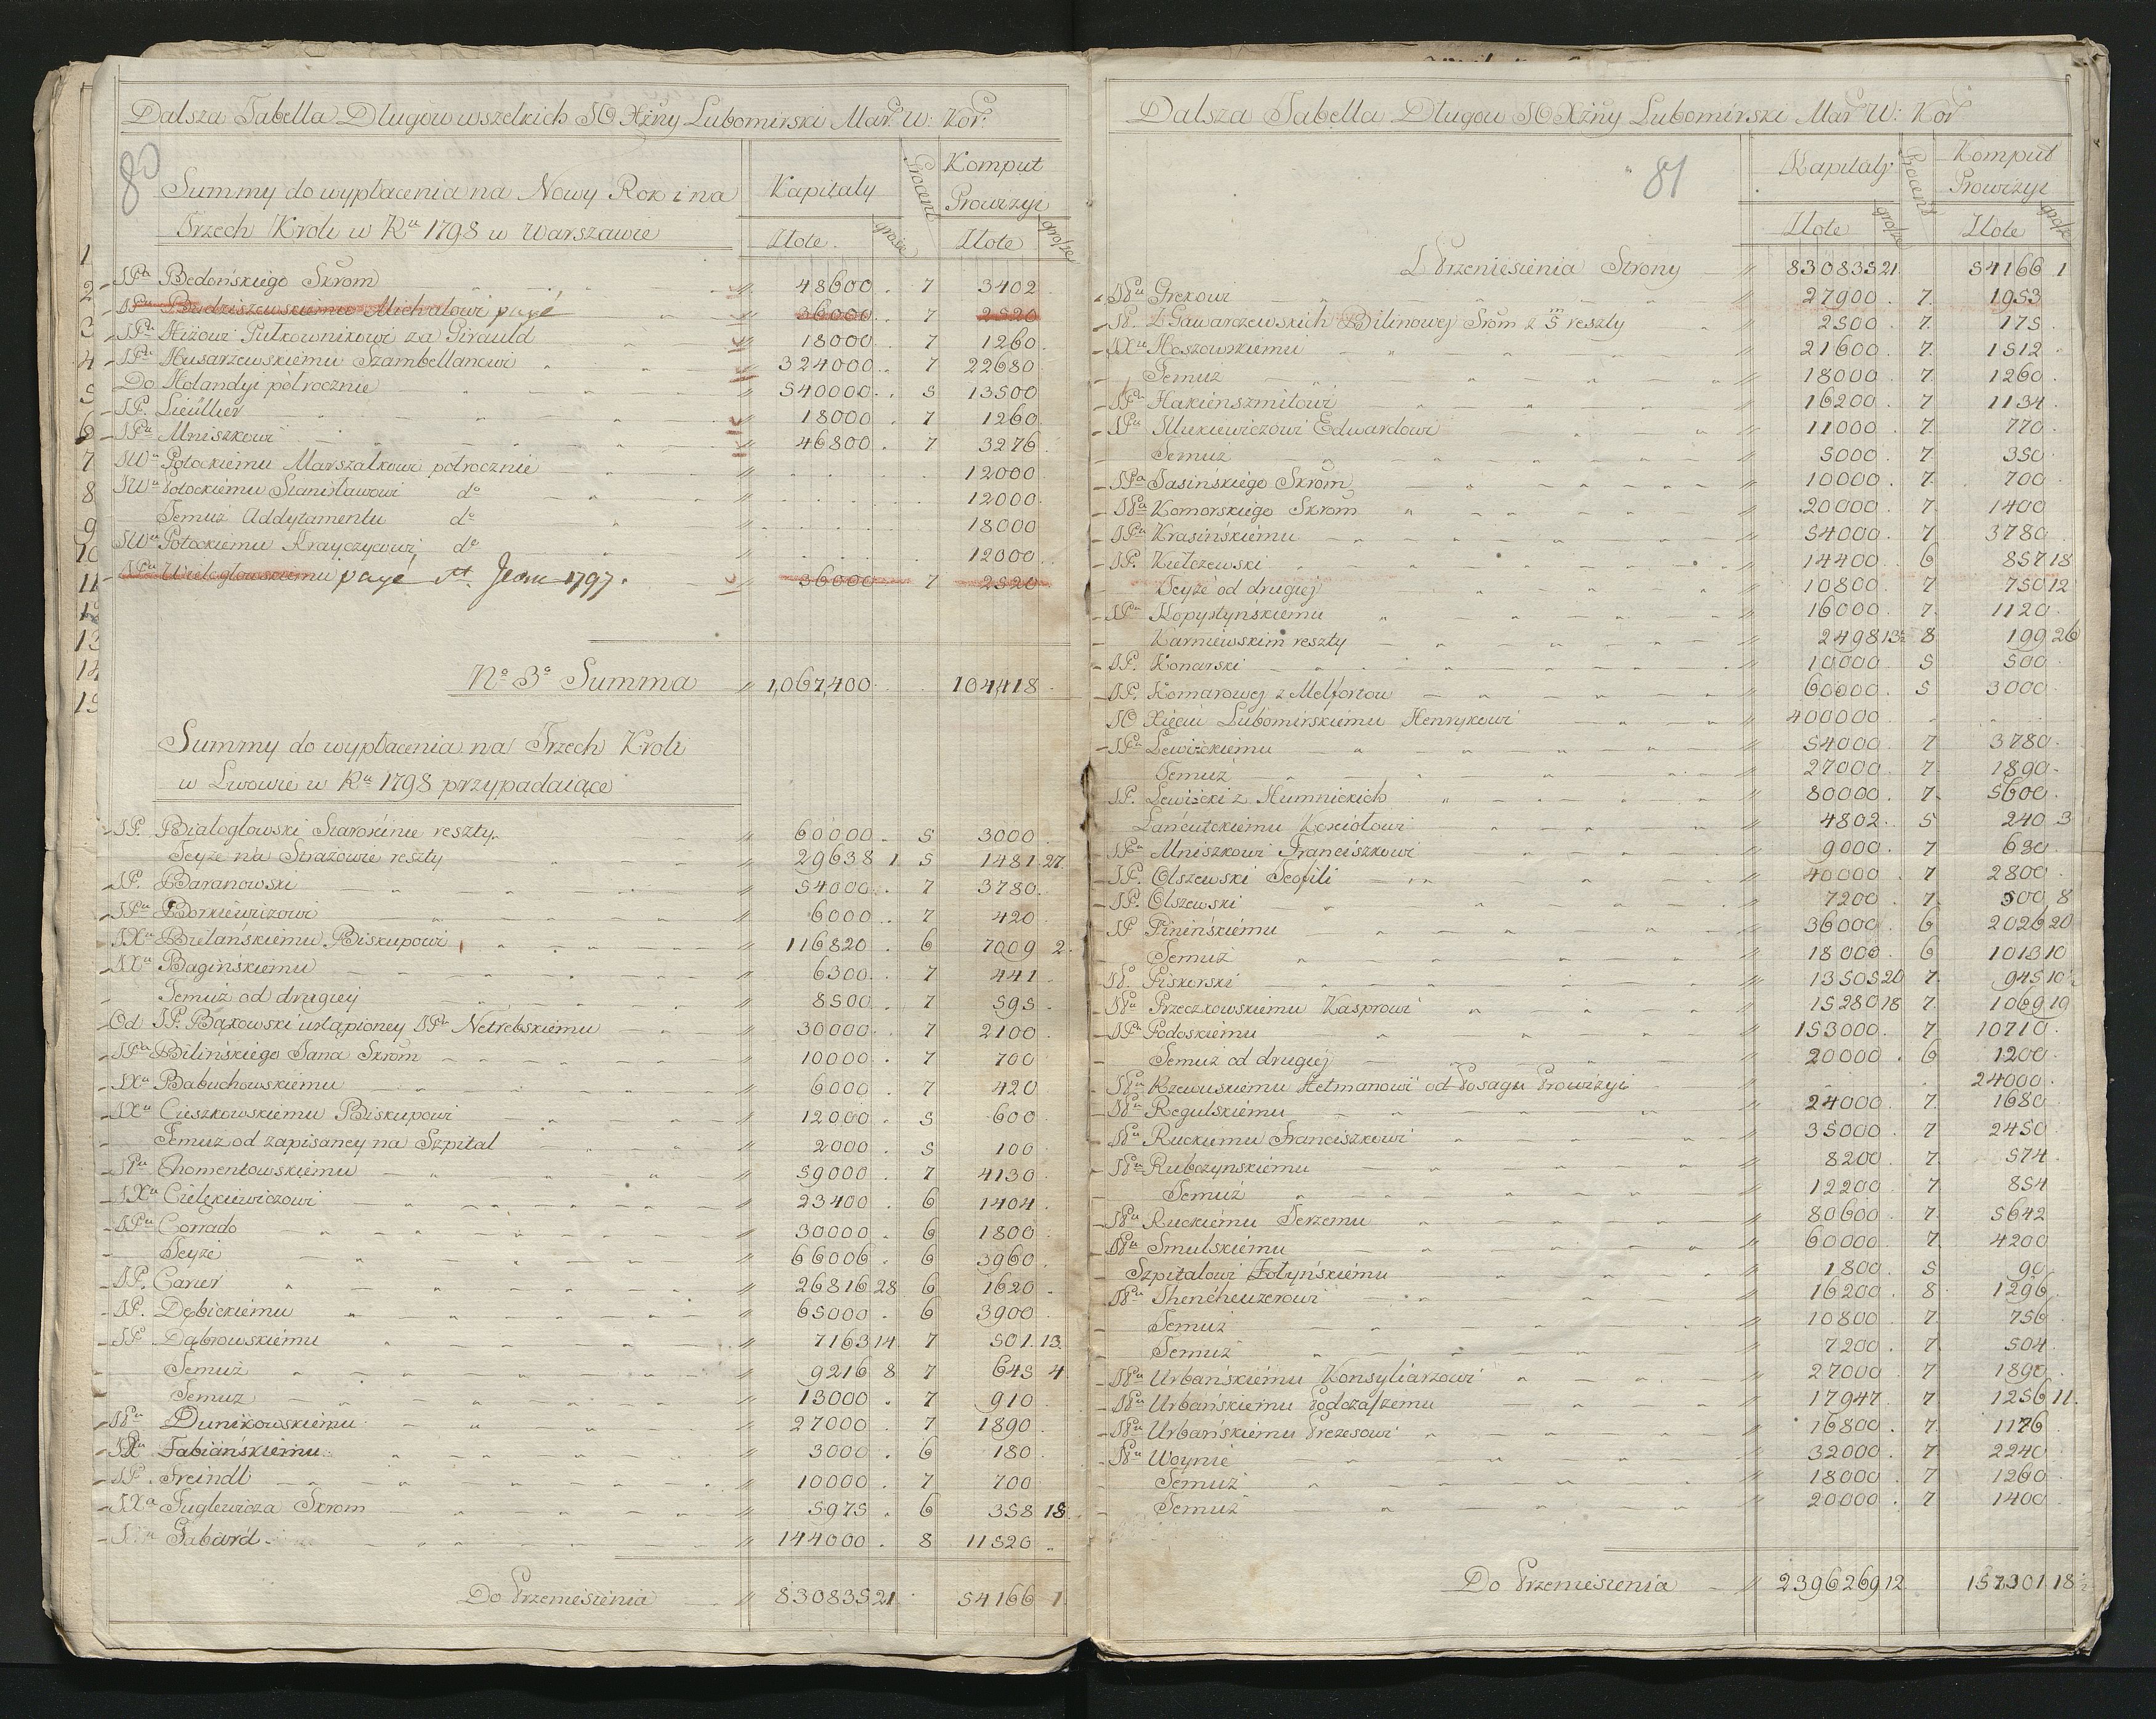 Dalsza Tabella Długow wszelkich JO Xżny Lubomirski Mar. W: Kor:
80
Summy do wypłacenia na Nowy Rok i na
Trzech Kroli w Ru 1798 w Warszawie
Kapitały Procent Komput Prowizyi
Złote. grosze Złote grosze
1
2
3
4
5
6
7
8
9
10
11
12
13
14
15
JPa Bedońskiego Skrom 48600 . 7 3402
JPu Budziszewskiemu Michałowi payé 36000 . 7 2520
JPu Hiżowi Pułkownikowi za Girauld 18000 . 7 1260
JPu Husarzewskiemu Szambellanowi 324000 . 7 22680
Do Holandyi połrocznie 540000 . 5 13500
JP. Lieüllier 18000 . 7 1260
JPu Mniszkowi 46800 . 7 3276
JWu Potockiemu Marszałkowi połrocznie 12000
JWu Potockiemu Stanisławowi do 12000
Temuż Addytamentu do 18000
JWu Potockiemu Krayczycowi do 12000
JPu Wielogłowskiemu payé St. Jean 1797. 36000 7 2520
No 3o Summa 1,067,400 104,418
Summy do wypłacenia na Trzech Kroli
w Lwowie w Ru 1798 przypadaiące
JP. Białogłowski Starościnie reszty 60000 . 5 3000
Teyże na Strażowie reszty 29638 1 5 1481 27
JP. Baranowski 54000 . 7 3780
JPu Borkiewiczowi 6000 . 7 420
JXu Bielańskiemu Biskupowi 116820 . 6 7009 2
JXu Bagińskiemu 6300 . 7 441
Temuż od drugiey 8500 . 7 595
Od JP. Bąkowski ustąpioney JPu Netrebskiemu 30000 . 7 2100
JPa Bilińskiego Jana Skrom 10000 . 7 700
JXu Babuchowskiemu 6000 . 7 420
JXu Cieszkowskiemu Biskupowi 12000 . 5 600
Temuż od zapisaney na Szpital 2000 . 5 100
JPu Chomentowskiemu 59000 . 7 4130
JXu Cielękiewiczowi 23400 . 6 1404
JPu Corrado 30000 . 6 1800
Teyże 66006 . 6 3960
JP. Carier 26816 28 6 1620
JP. Dębickiemu 65000 . 6 3900
JP. Dąbrowskiemu 7163 14 7 501 13
Temuż 9216 8 7 645 4
Temuż 13000 . 7 910
JPu Dunikowskiemu 27000 . 7 1890
JXu Fabiańskiemu 3000 . 6 180
JP. Freindl 10000 . 7 700
JXa Fuglewicza Skrom 5975 . 6 358 15
Gabard 144000 . 8 11520
Do Przeniesienia 830835 21 54166 1
Dalsza Tabella Długow JO Xżny Lubomirski Mar W: Kor
81
Kapitały Procent Komput Prowizyi
Złote grosze Złote grosze
Z Przeniesienia Strony 830835 21. 54166 1
JPu Grekowi 27900 . 7. 1953
JP. z Gawarzewskich Bilinowey Srom z m/5 reszty 2500 . 7. 175
JXu Hoszowskiemu 21600 . 7. 1512
Temuż 18000 . 7. 1260
JPu Hakienszmitowi 16200 . 7 1134
JPu Edwardowi 11000 . 7. 770
Temuż 5000 . 7. 350
JPa Jasińskiego Skrom 10000 . 7. 700
JPa Komorskiego Skrom 20000 . 7. 1400
JPu Krasińskiemu 54000 . 7 3780
JP. Kiełczewski 14400 . 6 857 18
Teyże od drugiey 10800 . 7 750 12
JPu Kopystyńskiemu 16000 . 7. 1120
Karniewskim reszty 2498 13 8 199 26
JP. Konarski 10000 . 5 500
JP. Komarowey z Melfortow 60000 . 5 3000
JO Xięciu Lubomirskiemu Henrykowi 400000
JPu Lewickiemu 54000 . 7 3780
Temuż 27000 . 7. 1890
JP. Lewicki z Humnickich 80000 . 7. 5600
Łancutckiemu Kosciołowi 4802 . 5 240 3
JPu Mniszkowi Franciszkowi 9000 . 7 630
JP. Olszewski Teofili 40000 . 7 2800
JP. Olszewski 7200 . 7. 500 8
JP Pinińskiemu 36000 . 6 2026 20
Temuż 18000 . 6 1013 10
JP. Piskorski 13505 20 7. 945 10
JPu Przeczkowskiemu Kasprowi 15280 18 7. 1069 19
JPu Podoskiemu 153000 . 7. 10710
Temuż od drugiey 20000 . 6 1200
JPu Rzewuskiemu Hetmanowi od Posagu Prowizyi 24000
JPu Regulskiemu 24000 . 7. 1680
JPu Ruckiemu Franciszkowi 35000 . 7 2450
JPu Rubczynskiemu 8200 . 7. 574
Temuż 12200 . 7 854
JPu Ruckiemu Jerzemu 80600 . 7. 5642
JPu Smulskiemu 60000 . 7. 4200
Szpitalowi Fołyńskiemu 1800 . 5 90
JPu Shencheuzerowi 16200 . 8 1296
Temuż 10800 . 7. 756
Temuż 7200 . 7. 504
JPu Urbańskiemu Konsyliarzowi 27000 . 7 1890
JPu Urbańskiemu Podczaszemu 17947 . 7 1256 11.
JPu Urbańskiemu Prezesowi 16800 . 7. 1176
JPu Woynie 32000 . 7 2240
Temuż 18000 . 7 1260
Temuż 20000 . 7 1400
Do Przeniesienia 2396269 12 157301 18